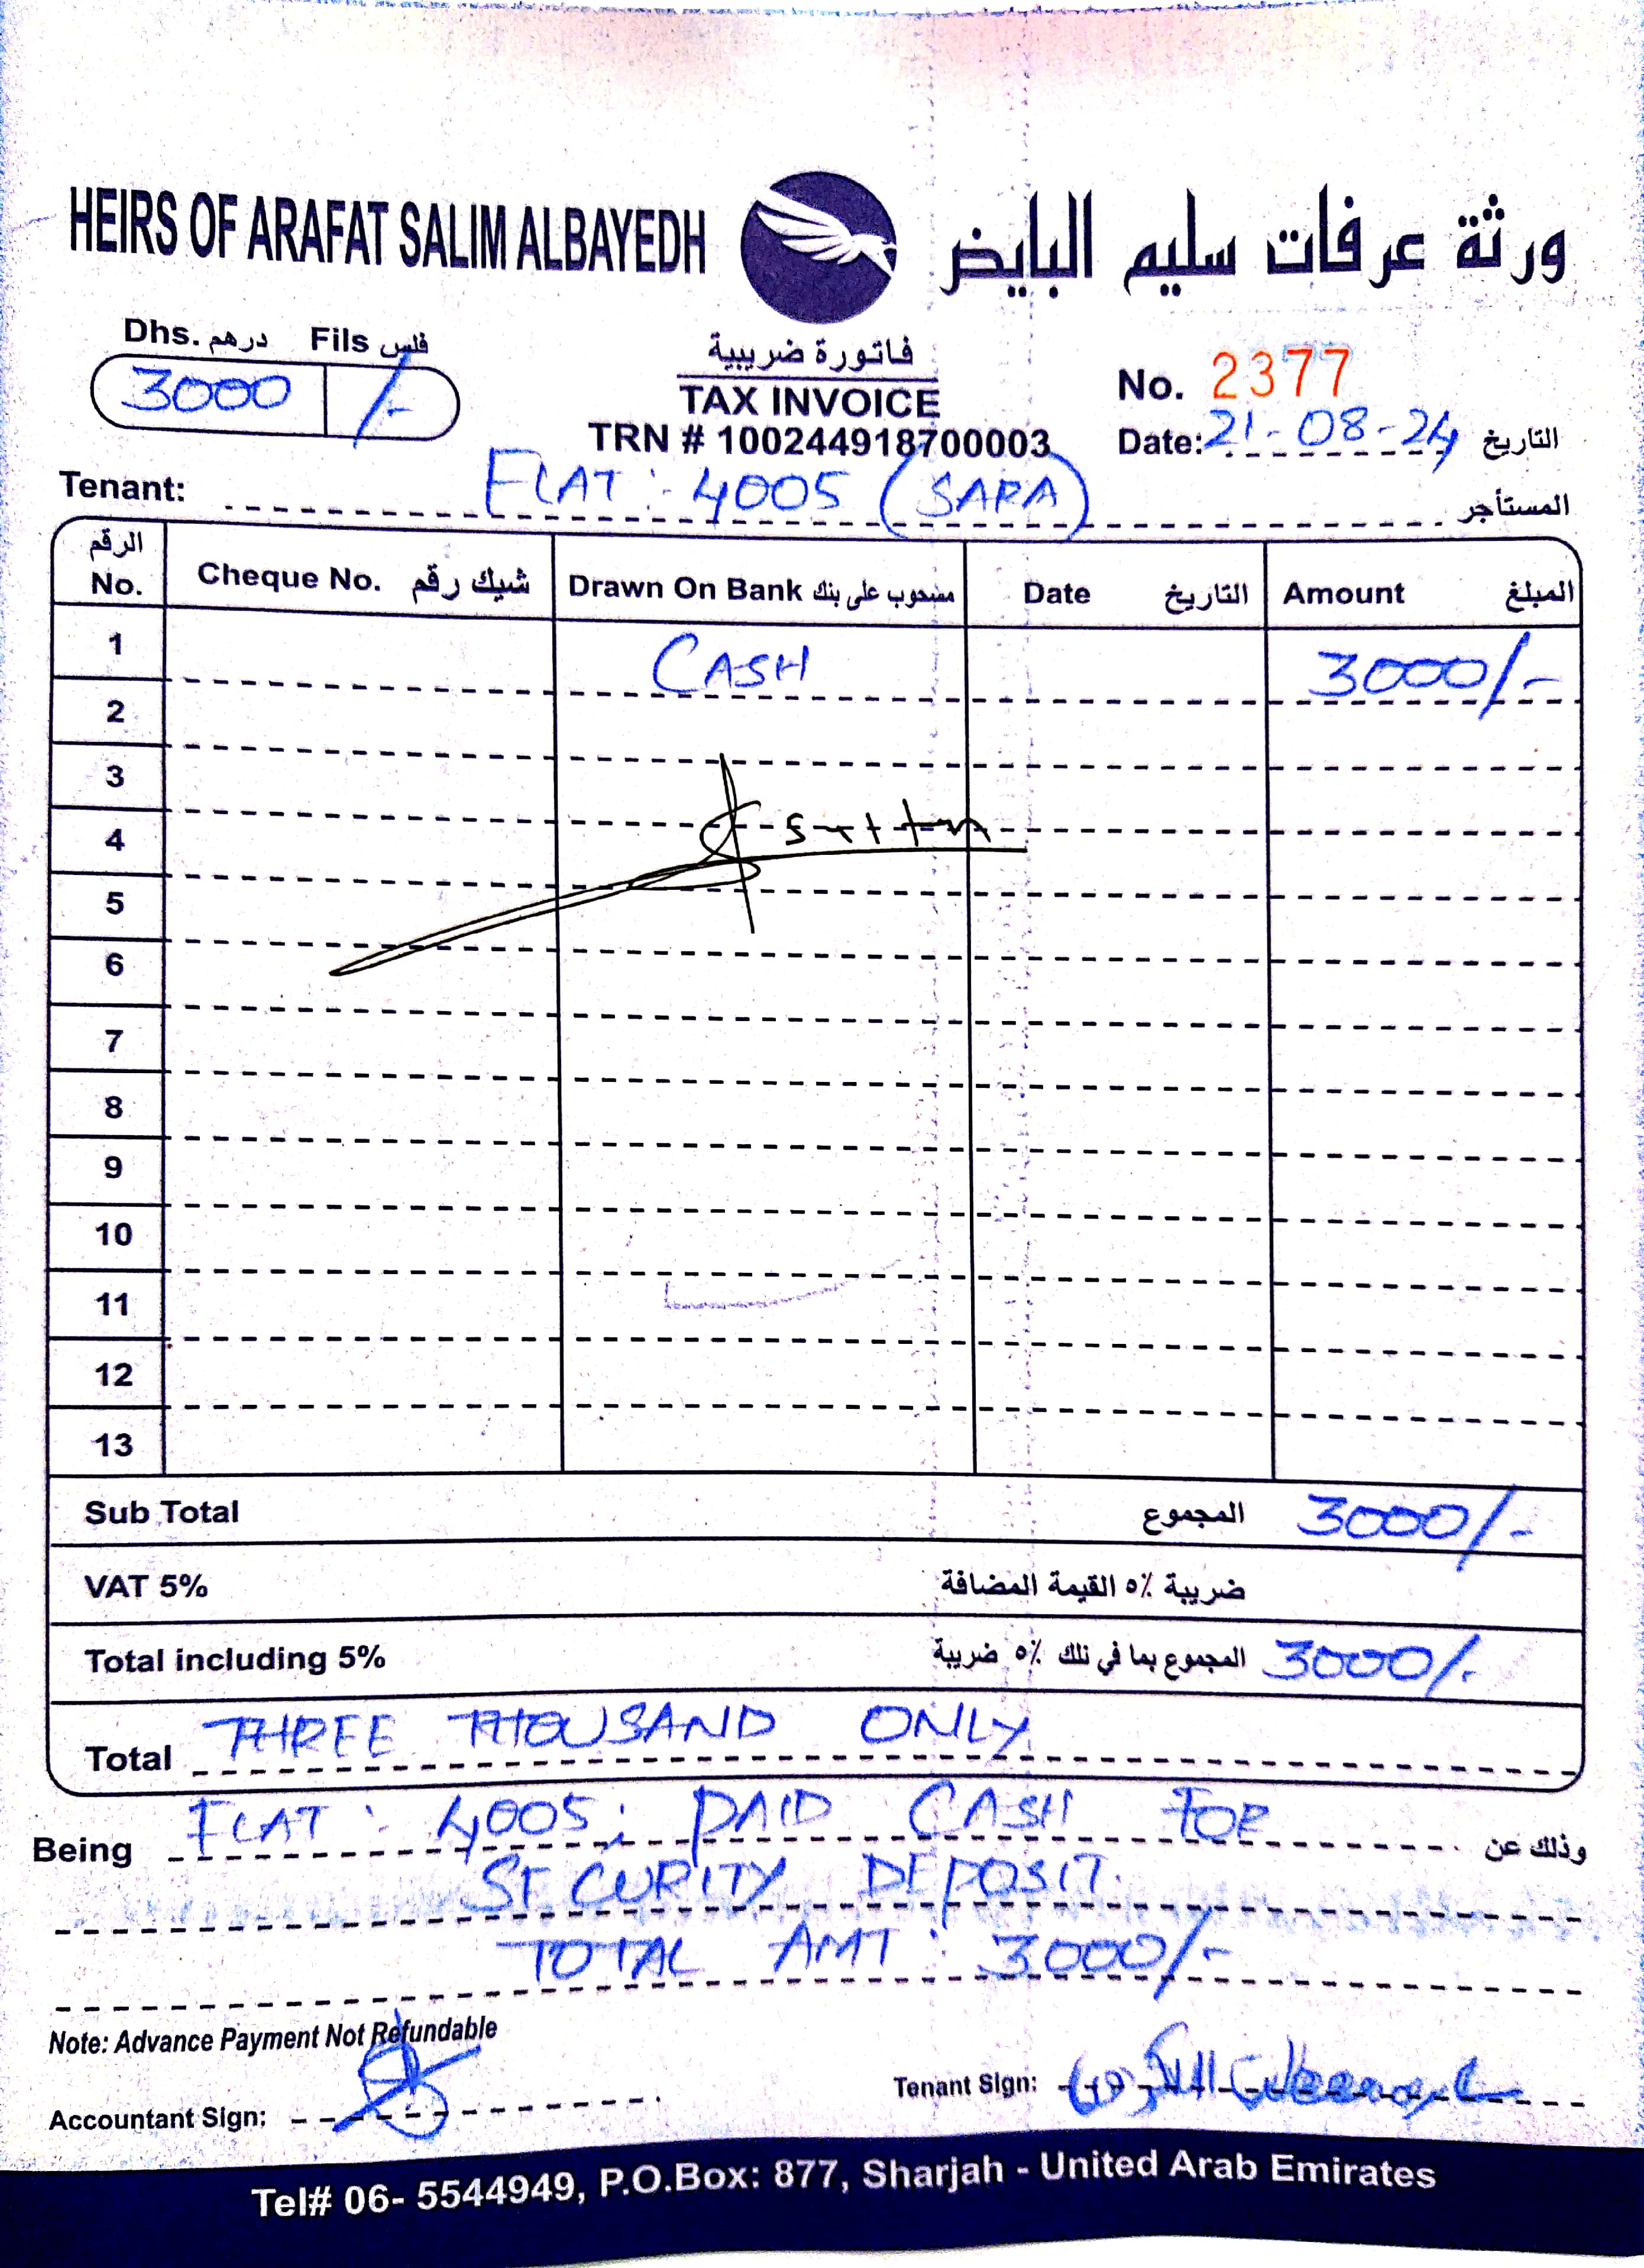 HEIRS OF ARAFAT SALIM ALBAYEDH ورثة عرفات سليم البايض
Dhs. درهم Fils فلس
3000 /-
فاتورة ضريبية
TAX INVOICE
TRN # 100244918700003
No. 2377
Date: 21-08-24 التاريخ
Tenant: FLAT :- 4005 (SARA) المستأجر
الرقم No. Cheque No. شيك رقم Drawn On Bank مسحوب على بنك Date التاريخ Amount المبلغ
1 CASH 3000/-
2
3
4
5
6
7
8
9
10
11
12
13
Sub Total المجموع 3000/-
VAT 5% ضريبة ٥٪ القيمة المضافة
Total including 5% المجموع بما في ذلك ٥٪ ضريبة 3000/-
Total THREE THOUSAND ONLY
Being FLAT : 4005; PAID CASH FOR وذلك عن
SECURITY DEPOSIT.
TOTAL AMT : 3000/-
Note: Advance Payment Not Refundable
Accountant Sign:
Tenant Sign:
Tel# 06- 5544949, P.O.Box: 877, Sharjah - United Arab Emirates